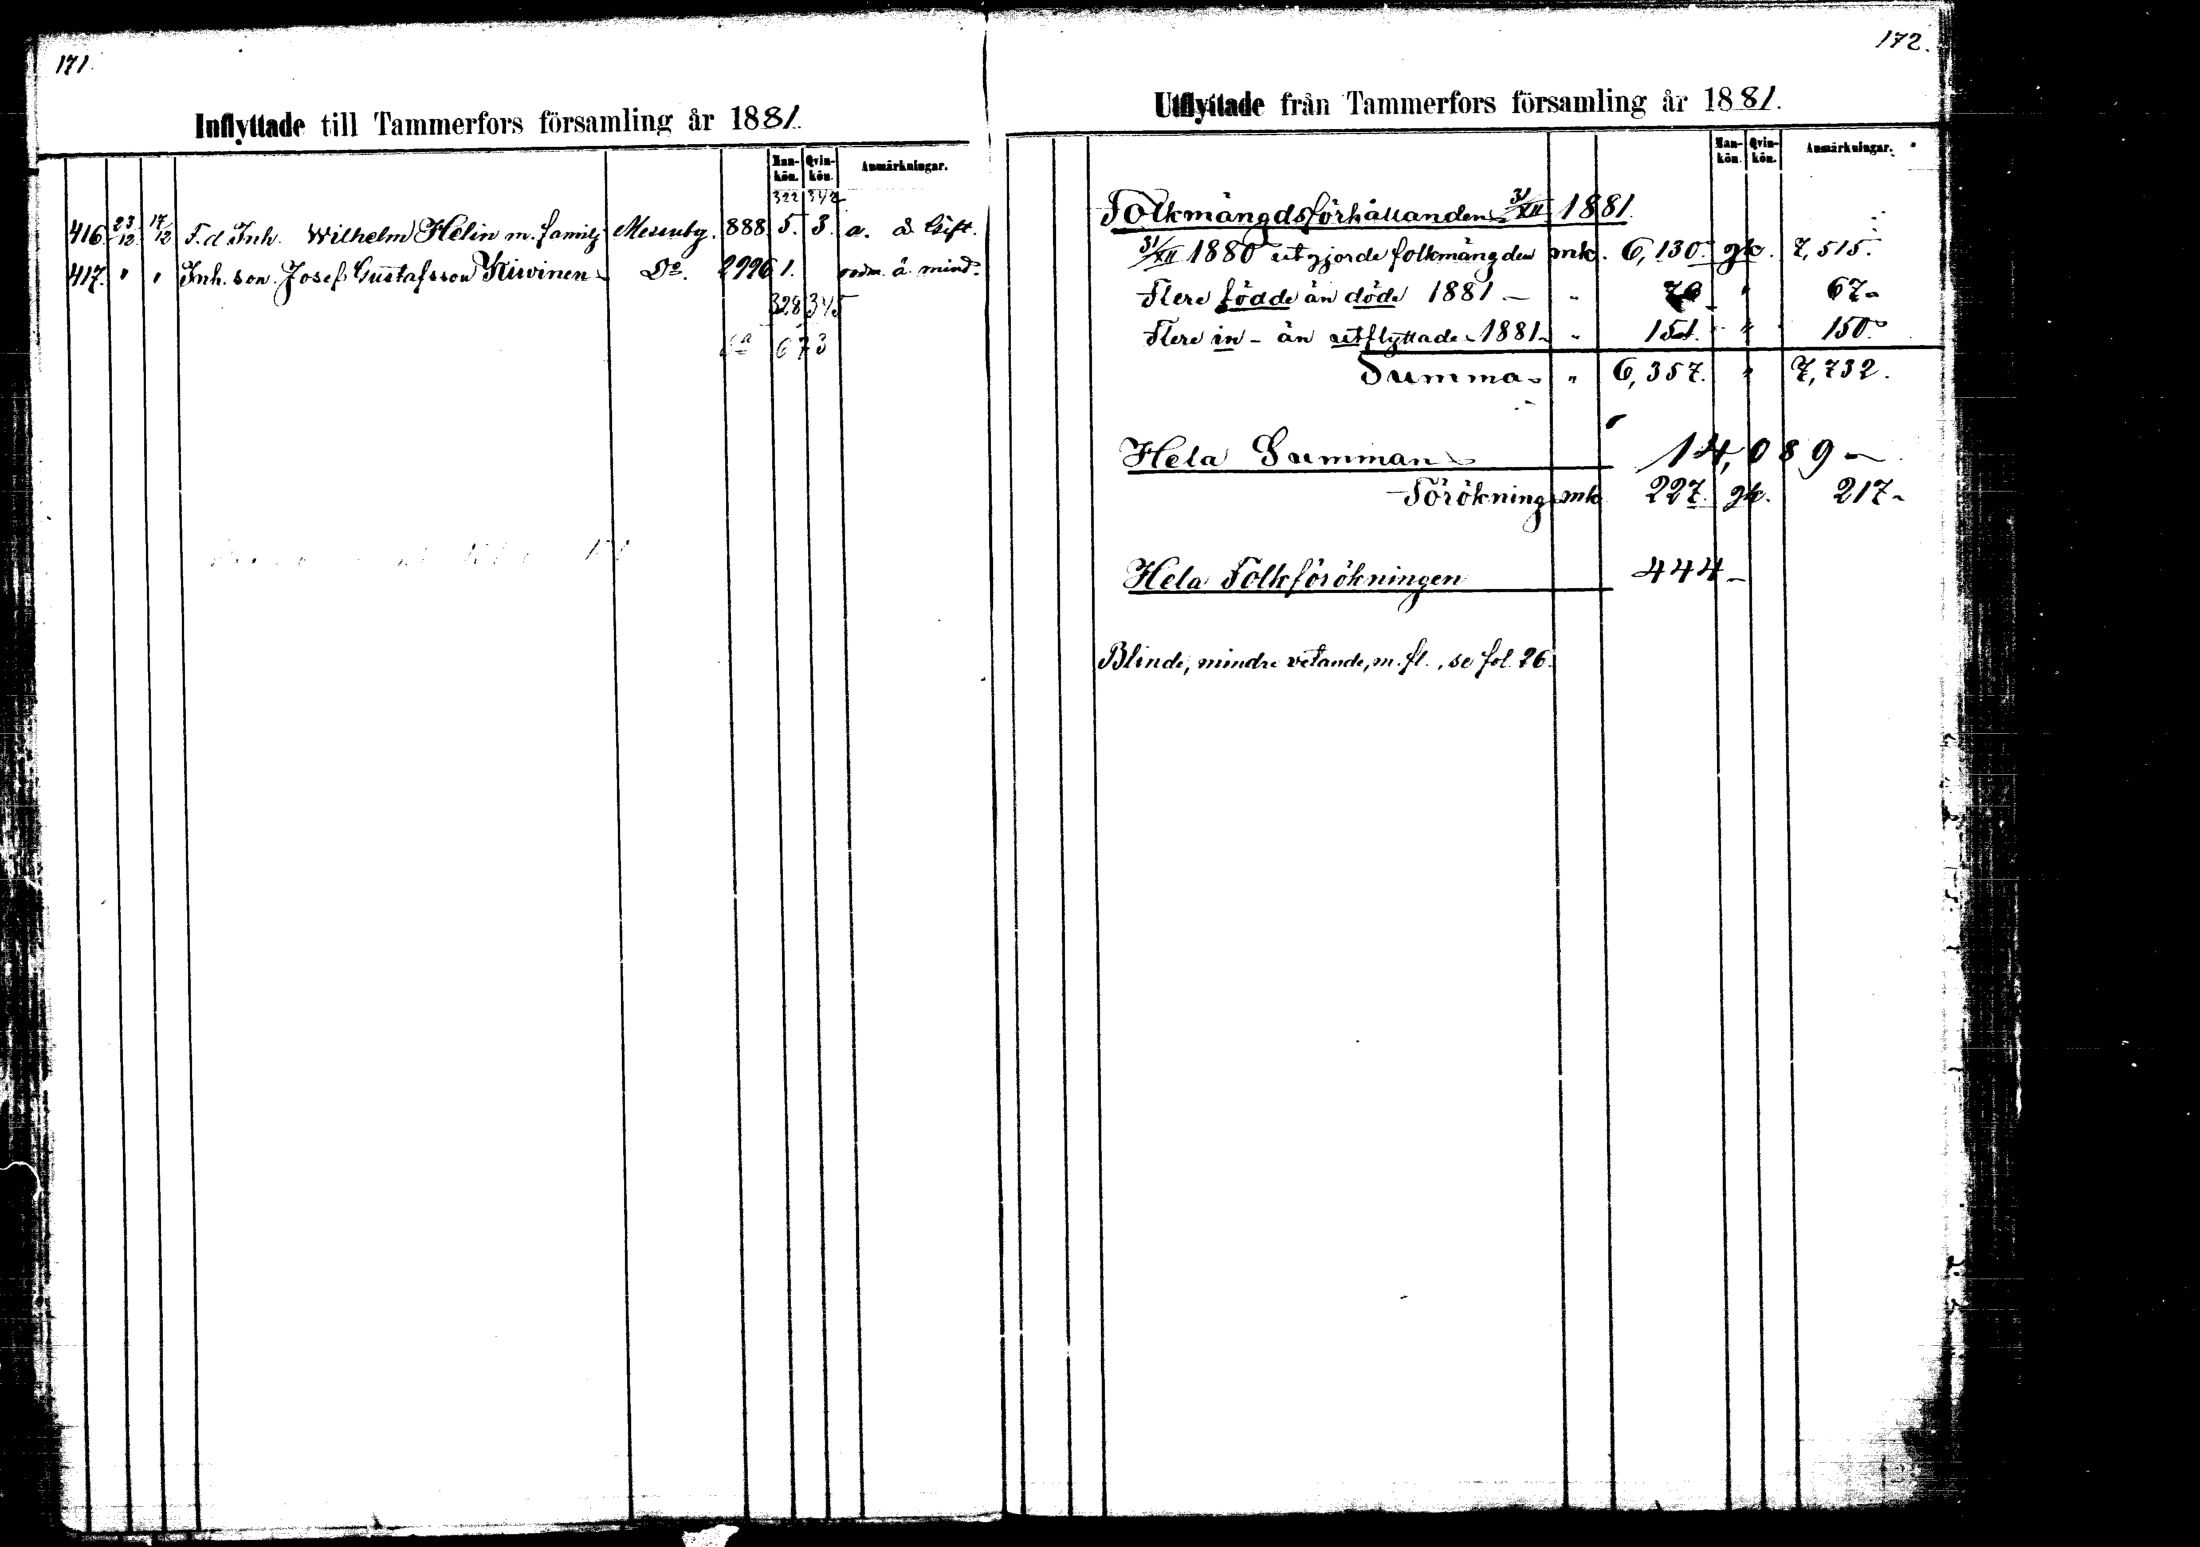 171.
Inflyttade till Tammerfors församling år 1881.
Mankön. Qvinkön. Anmärkningar.
322 342
416. 23/12 17/12 F.d Inh. Wilhelm Helin m. familj Messuby. 888 5. 3. a. å Gift.
417. " " Inh. son. Josef Gustafsson Kiwinen Do. 2996 1. å mind.
328 345
Sa 673
172.
Utflyttade från Tammerfors församling år 1881.
Mankön. Qvinkön. Anmärkningar.
Folkmängdsförhållanden 31/XII 1881.
31/XII 1880 utgjorde folkmängden mk. 6,130. qk. 7,515.
Flere födde än döde 1881 — " 76 " 67
Flere in- än utflyttade 1881 " 151. " 150.
Summa " 6,357. " 7,732.
Hela Summan 14,089
Förökning mk 227. qk. 217
Hela Folkförökningen 444
Blinde, mindre vetande, m. fl., se fol. 26.